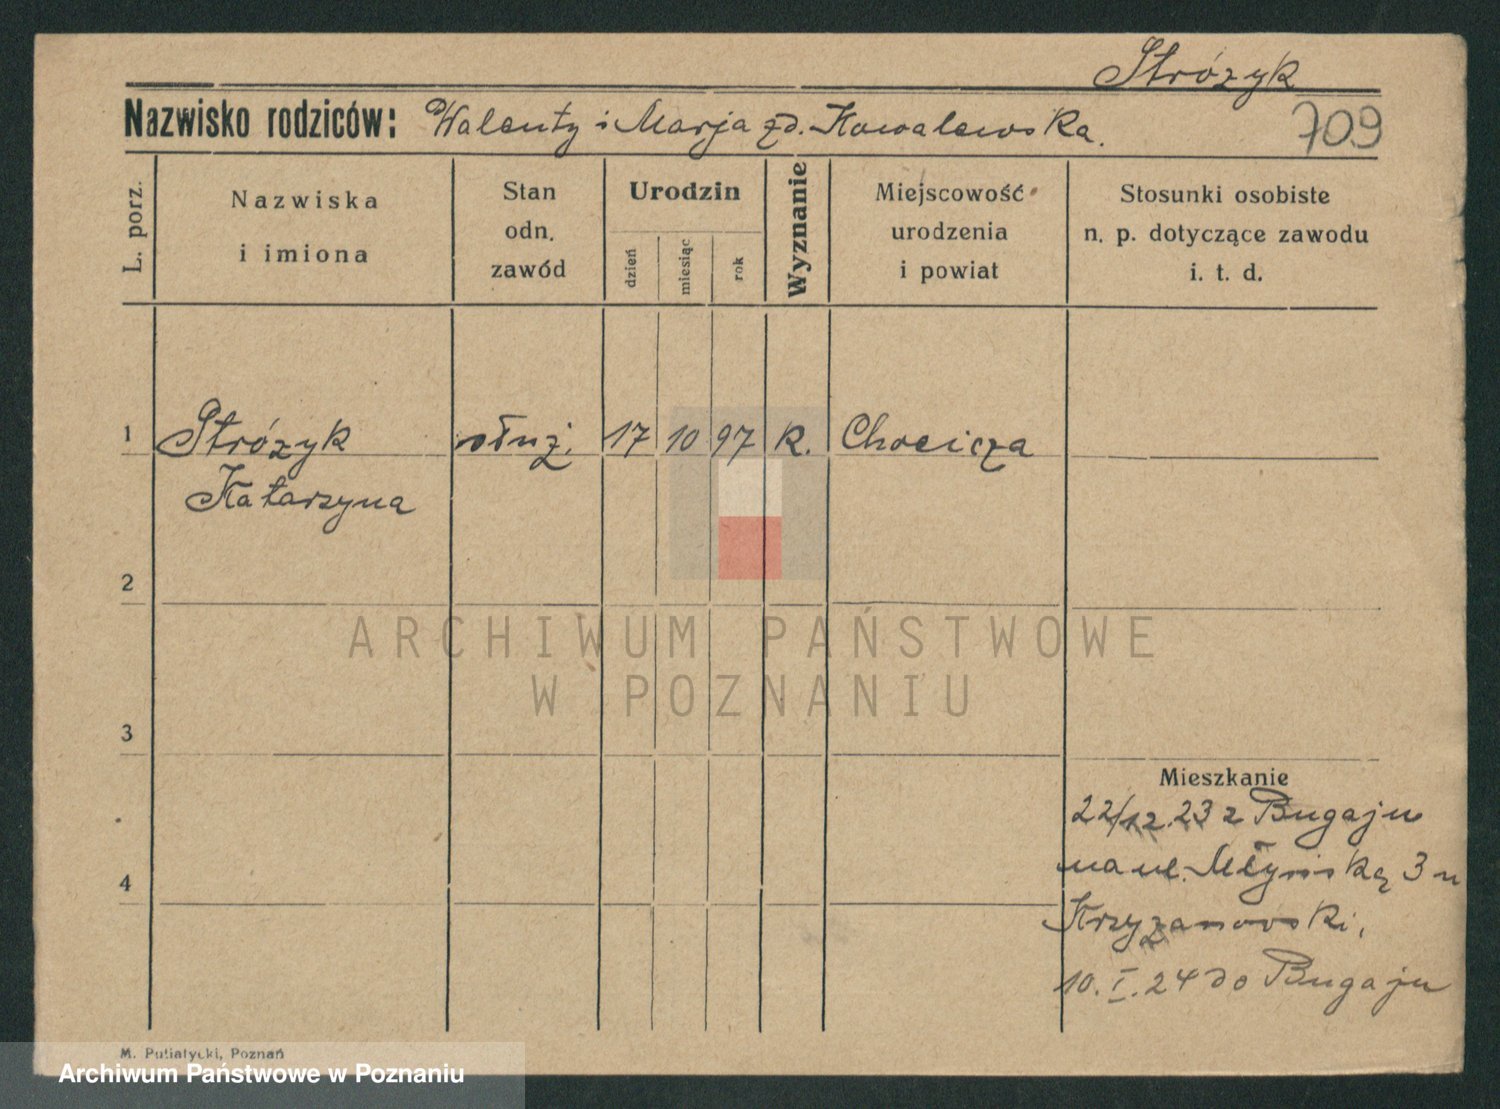 Stróżyk
Nazwisko rodziców: Walenty i Marja zd. Kowalewska.
709
L. porz.
Nazwiska
i imiona
Stan
odn.
zawód
Urodzin
dzień
miesiąc
rok
Wyznanie
Miejscowość
urodzenia
i powiat
Stosunki osobiste
n. p. dotyczące zawodu
i. t. d.
1 Stróżyk służ. 17 10 97 k. Chocicza
Katarzyna
2
3
4
ARCHIWUM PAŃSTWOWE
W POZNANIU
Mieszkanie
22/12.23 z Bugaju
na ul. Młyńską 3 u
Krzyżanowski,
10.I.24 do Bugaju
M. Putiatycki, Poznań
Archiwum Państwowe w Poznaniu